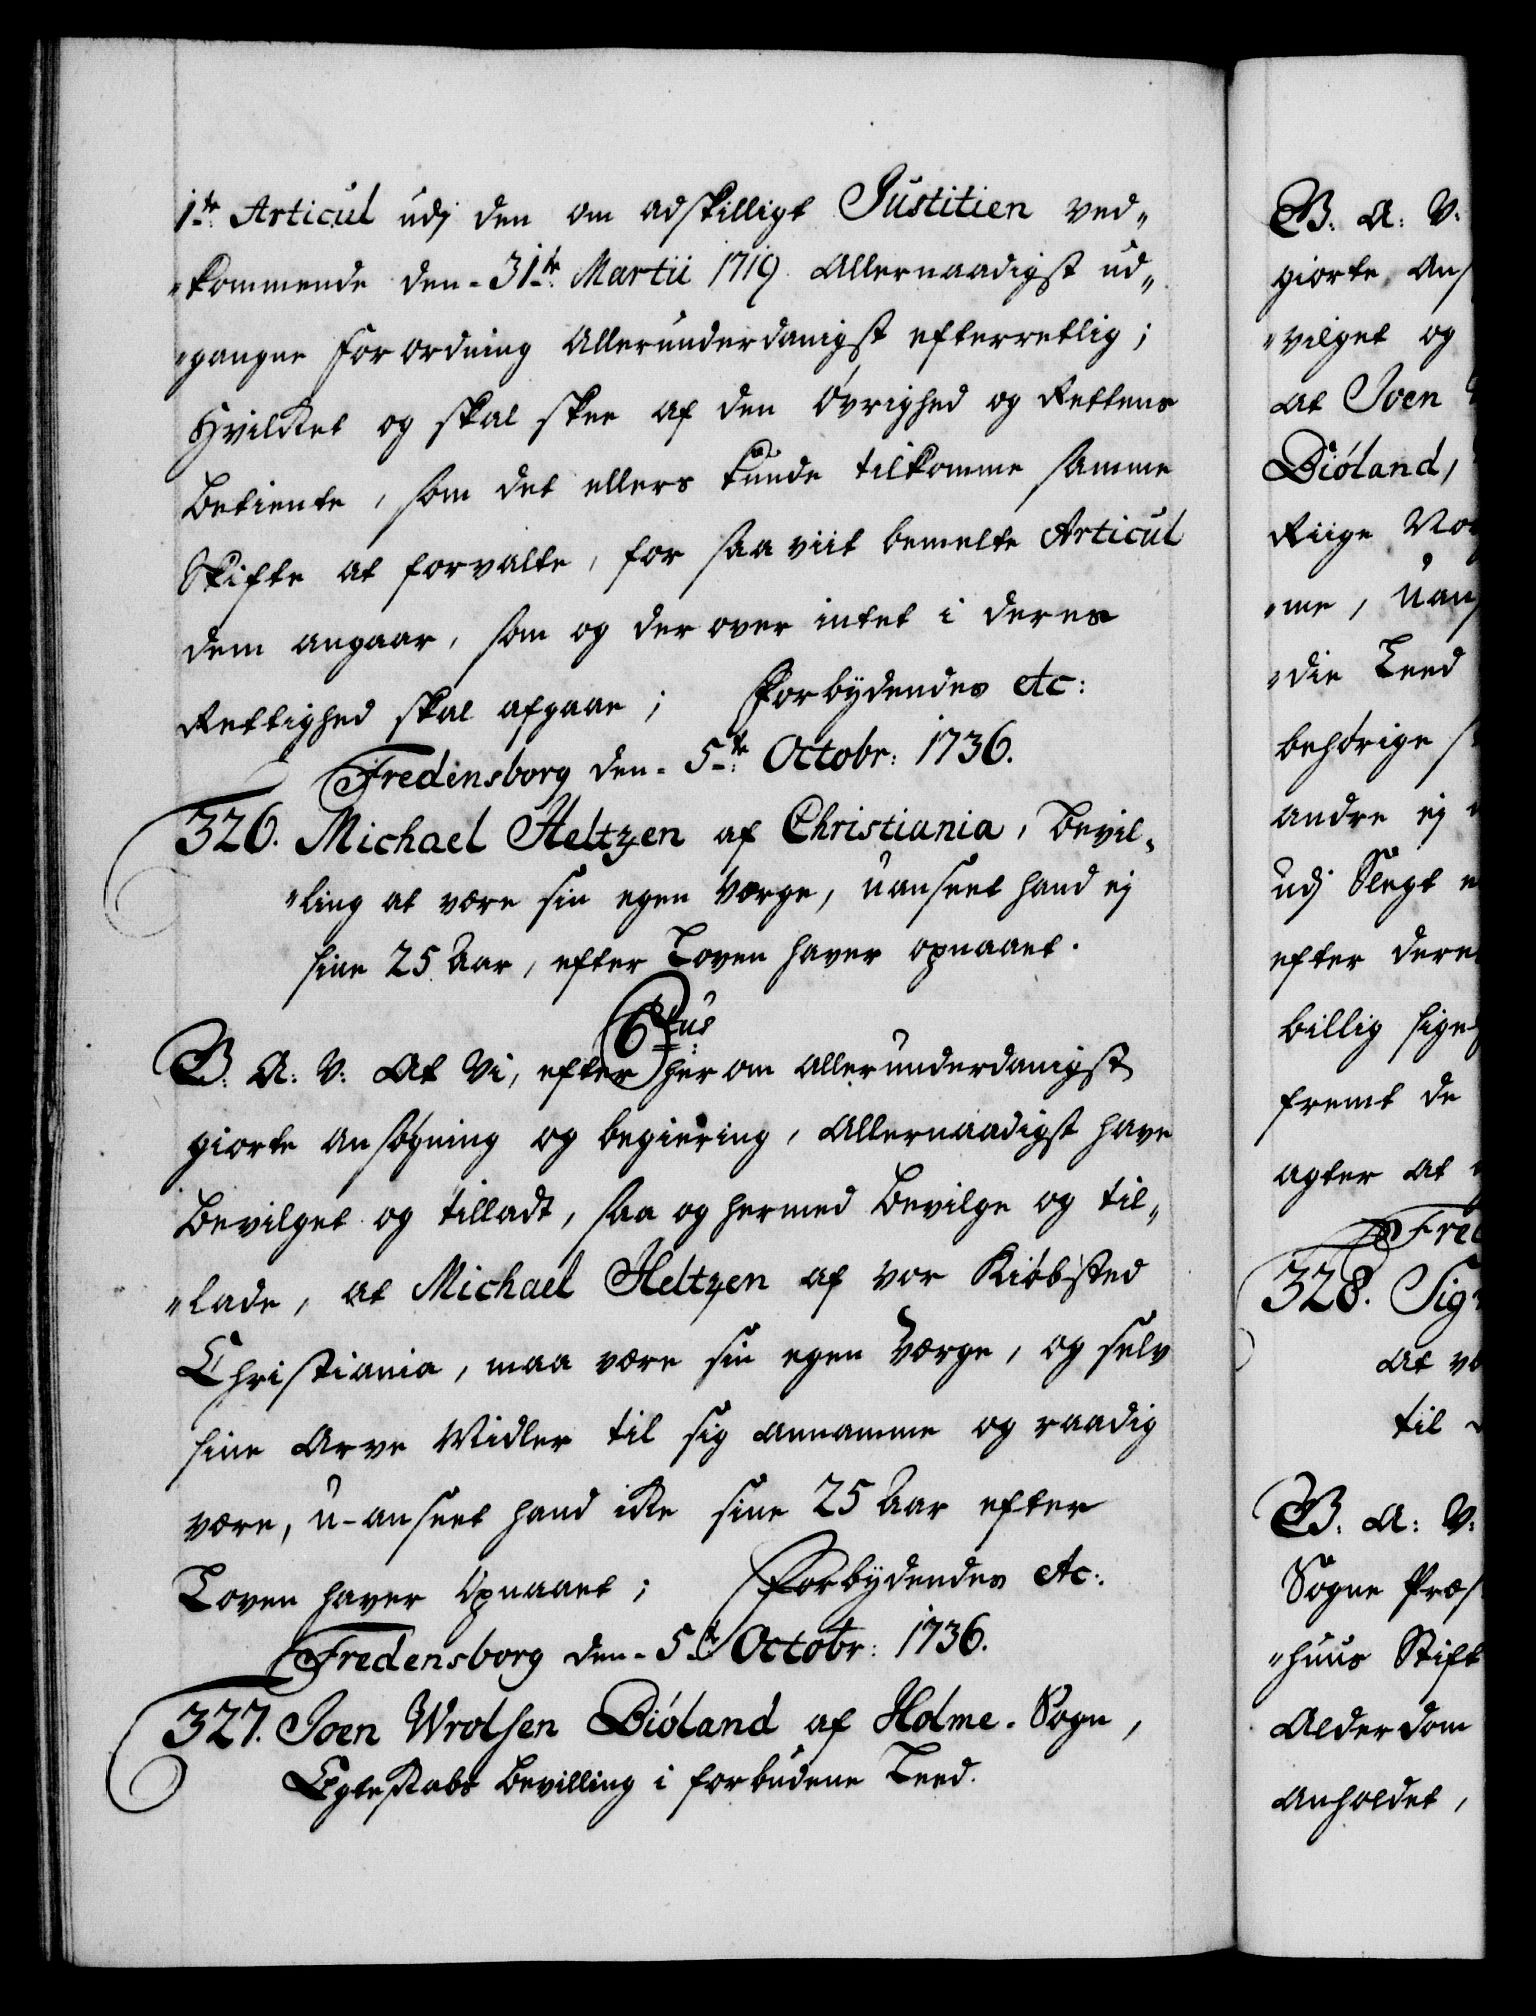 1te Articul udj den om adskilligt Justitien ved„
„kommende den 31te Martii 1719. Allernaadigst ud„
„gangne forordning Allerunderdanigst efterretlig;
Hvilket og skal skee af den Øvrighed og Rettens
betiente, som det ellers kunde tilkomme samme
Skifte at forvalte, for saa viit bemelte Articul
dem angaar, som og der over intet i deres
Rettighed skal afgaae; Forbydendes etc:
Fredensborg den 5te Octobr: 1736.
326. Michael Heltzen af Christiania, bevil„
„ling at være sin egen Værge, uanseet hand ej
sine 25 Aar, efter Loven haver opnaaet.
C 6tus
B: A: V: At Vi, efter her om allerunderdanigst
giorte ansøgning og begiering, Allernaadigst have
bevilget og tilladt, saa og hermed bevilge og til„
„lade, at Michael Heltzen af vor Kiøbsted
Christiania, maa være sin egen Værge, og selv
sine Arve Midler til sig annamme og raadig
være, u-anseet hand ikke sine 25 Aar efter
Loven haver Opnaaet; Forbydendes etc:
Fredensborg den 5te Octobr: 1736.
327. Joen Wrolsen Biøland af Holme Sogn,
Egteskabs bevilling i forbudene Leed.
B: A: V:
giorte Ans
„vilget og
at Joen
Biøland,
Riige No
„me, uans
„die Leed
behørige
andre ej
udj Slegt
efter dere
billig sige
fremt de
agter at
Fred
328. Sig
at væ
til
B: A: V:
Sogne Præs
„huus Stift
Alderdom
anholdet,